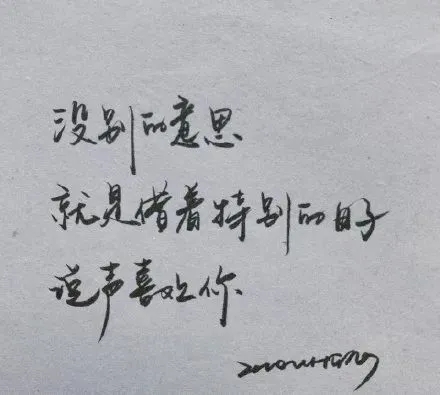 没别的意思
就是借着特别的日子
说声喜欢你